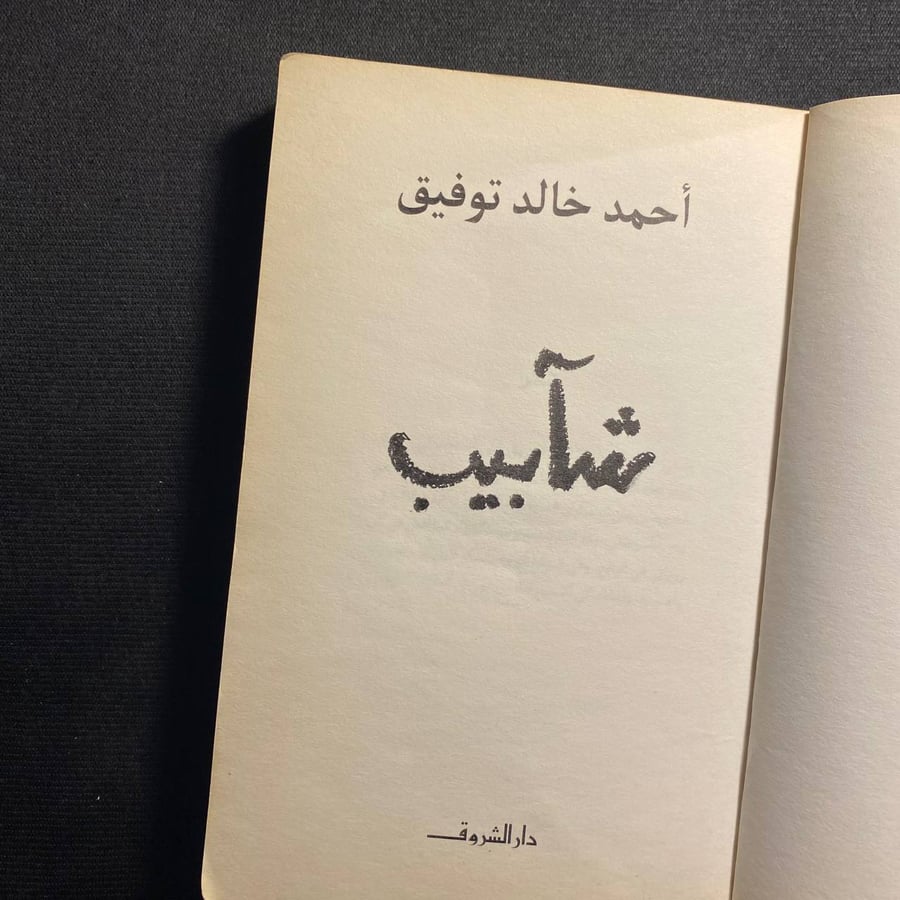 أحمد خالد توفيق
شآبيب
دار الشروق